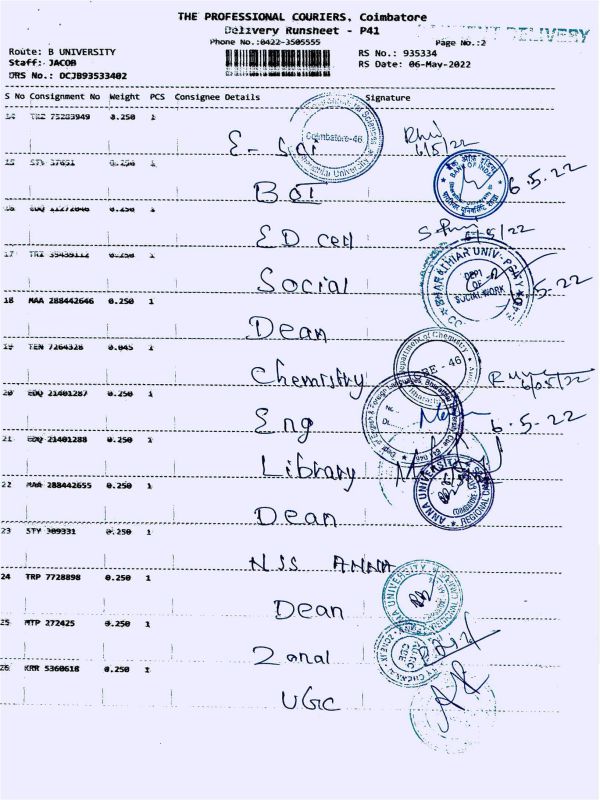 THE PROFESSIONAL COURIERS, Coimbatore
Delivery Runsheet - P41
DELIVERY
Phone No.:0422-3505555
Page No.:2
Route: B UNIVERSITY
RS No.: 935334
Staff: JACOB
RS Date: 06-May-2022
DRS No.: DCJB93533402
S No Consignment No Weight PCS Consignee Details Signature
14 0.250 1
Coimbatore-46
6/5/22
15 STY 37651 0.250 1
BOI
BANK OF INDIA
6.5.22
16 0.250 1
ED Cell
6/5/22
17 0.250 1
Social
BHARATHIAR UNIV.
DEPT OF SOCIAL WORK
6.5.22
18 MAA 288442646 0.250 1
Dean
19 TEN 7264328 0.045 1
Chemistry
Department of Chemistry
6/05/22
20 EDQ 21401287 0.250 1
Eng
6.5.22
21 EDQ 21401288 0.250 1
Library
22 MAA 288442655 0.250 1
Dean
ANNA UNIVERSITY
REGIONAL
23 STY 309331 0.250 1
NSS ANNA
24 TRP 7728898 0.250 1
Dean
ANNA UNIVERSITY
25 MTP 272425 0.250 1
Zonal
26 KRR 5360618 0.250 1
UGC